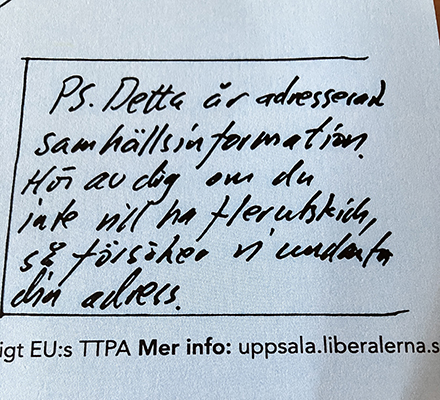 PS. Detta är adresserad
samhällsinformation.
Hör av dig om du
inte vill ha fler utskick,
så försöker vi undanta
din adress.
igt EU:s TTPA Mer info: uppsala.liberalerna.s